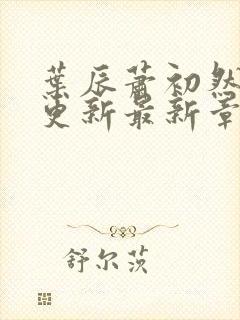 葉辰蕭初然
更新最新章
舒尔茨